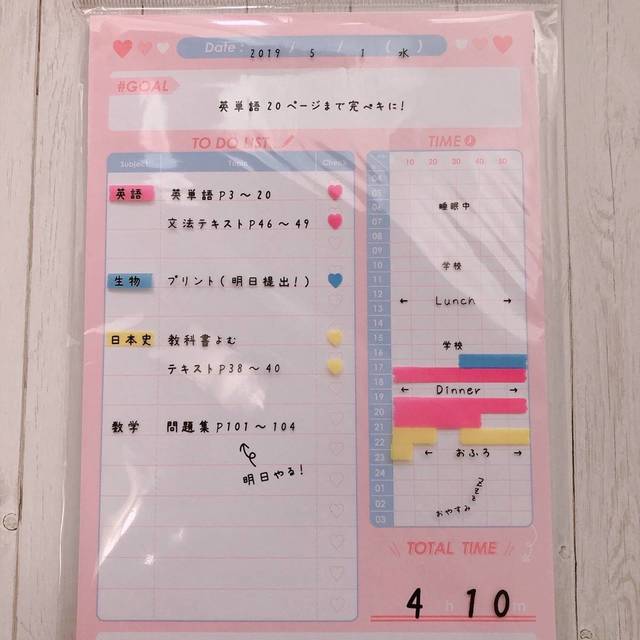 Date : 2019 / 5 / 1 ( 水 )
#GOAL
英単語20ページまで完ペキに!
TO DO LIST
Subject Topic Check
英語 英単語P3〜20
文法テキストP46〜49
生物 プリント(明日提出!)
日本史 教科書よむ
テキストP38〜40
数学 問題集P101〜104
明日やる!
TIME
10 20 30 40 50
04
05
06 睡眠中
07
08
09
10 学校
11
12 ← Lunch →
13
14
15 学校
16
17
18 ← Dinner →
19
20
21
22
23 ← おふろ →
24
01 zzz
02 おやすみ
03
TOTAL TIME
4 h 10 m